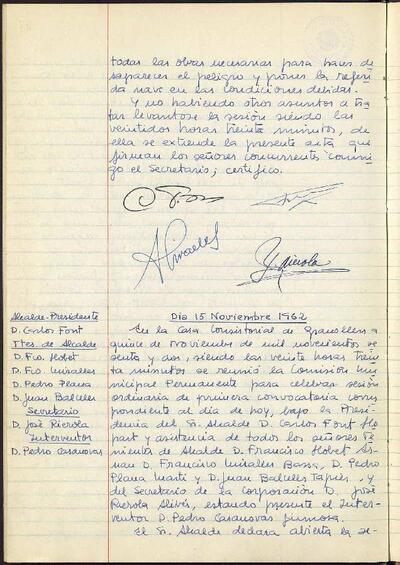 todas las obras necesarias para hacer de-
saparecer el peligro y poner la referi
da nave en las condiciones debidas.
Y no habiendo otros asuntos a tra
tar levantose la sesión siendo las
veintidos horas treinta minutos, de
ella se extiende la presente acta que
firman los señores concurrentes conmi
go el Secretario; certifico.
Día 15 Noviembre 1962
Alcalde-Presidente
D. Carlos Font
Ttes. de Alcalde
D. Fco. Llobet
D. Fco. Miralles
D. Pedro Plana
D. Juan Balcells
Secretario
D. José Rierola
Interventor
D. Pedro Casanovas
En la Casa Consistorial de Granollers a
quince de noviembre de mil novecientos se
senta y dos, siendo las veinte horas trein
ta minutos se reunió la Comisión Mu
nicipal Permanente para celebrar sesión
ordinaria de primera convocatoria corres
pondiente al día de hoy, bajo la Presi
dencia del Sr. Alcalde D. Carlos Font
y asistencia de todos los señores Te
nientes de Alcalde D. Francisco Llobet
D. Francisco Miralles Bassa, D. Pedro
Plana Martí y D. Juan Balcells Tapies, y
del Secretario de la Corporación D. José
Rierola Alibés, estando presente el Inter-
ventor D. Pedro Casanovas
El Sr. Alcalde declara abierta la se-